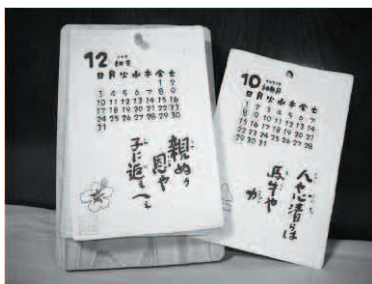 12
日月火水木金土
1 2
3 4 5 6 7 8 9
10 11 12 13 14 15 16
17 18 19 20 21 22 23
24 25 26 27 28 29 30
31
親ぬ
恩や
子に返
10
日月火水木金土
1 2 3 4 5 6 7
8 9 10 11 12 13 14
15 16 17 18 19 20 21
22 23 24 25 26 27 28
29 30 31
人や心清らは
馬牛や